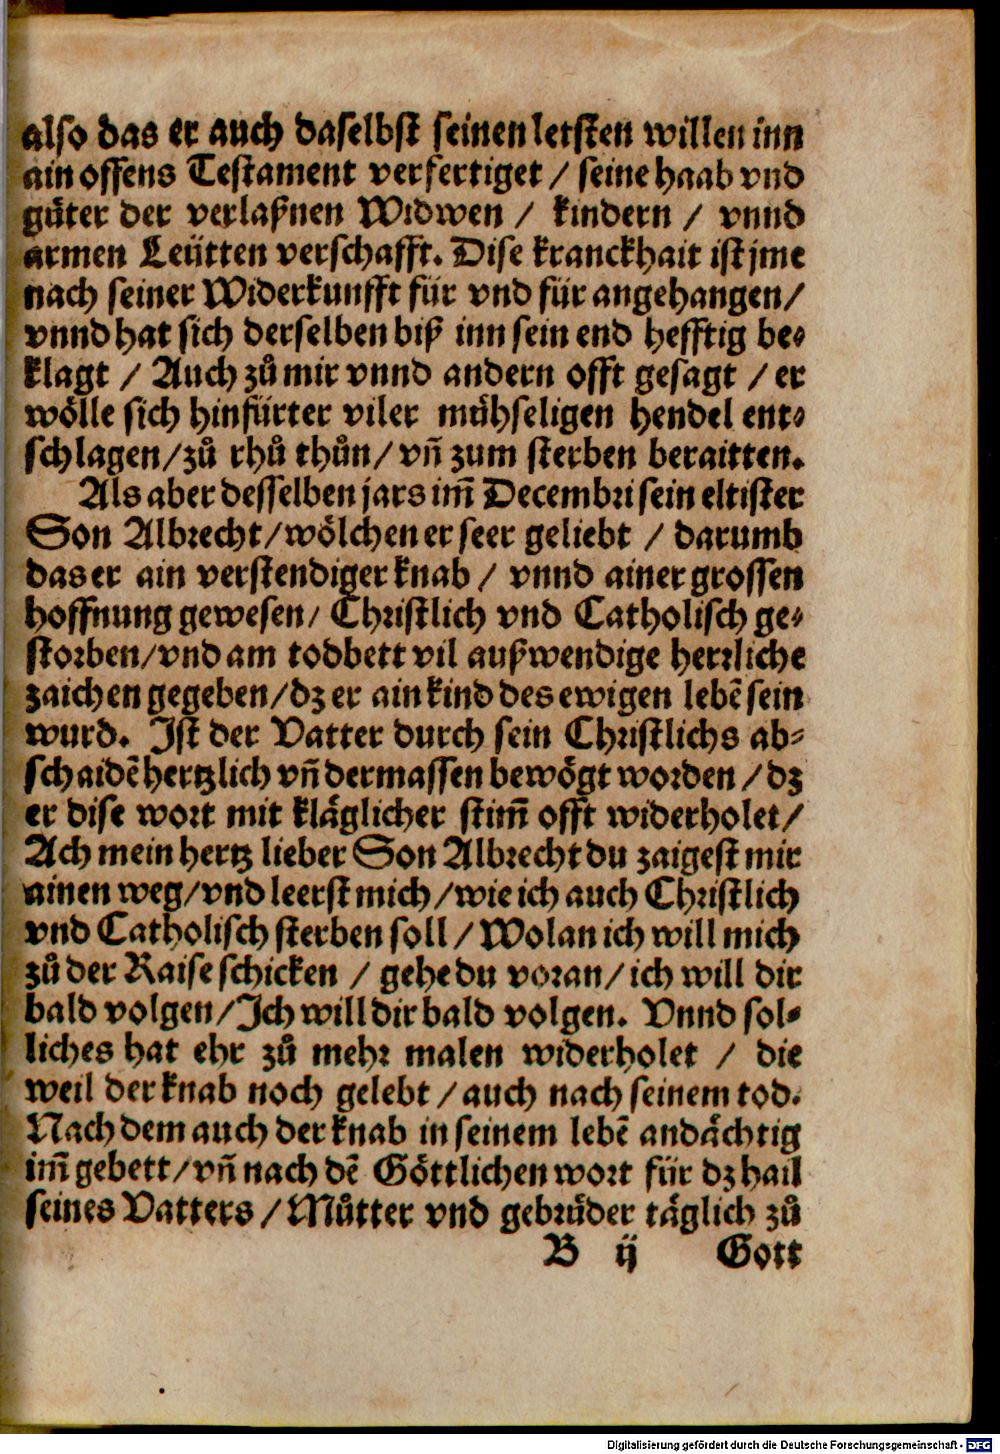 also das er auch daselbst seinen letsten willen inn
ain offens Testament verfertiget / seine haab vnd
guͤter der verlaßnen Widwen / kindern / vnnd
armen Leuͤtten verschafft. Dise kranckhait ist jme
nach seiner Widerkunfft für vnd für angehangen/
vnnd hat sich derselben biß inn sein end hefftig be⸗
klagt / Auch zuͦ mir vnnd andern offt gesagt / er
woͤlle sich hinfürter viler muͤhseligen hendel ent⸗
schlagen/zuͦ rhuͦ thuͦn/vn̄ zum sterben beraitten.
Als aber desselben jars im̄ Decembri sein eltister
Son Albrecht/woͤlchen er seer geliebt / darumb
das er ain verstendiger knab / vnnd ainer grossen
hoffnung gewesen/ Christlich vnd Catholisch ge⸗
storben/vnd am todbett vil außwendige herrliche
zaichen gegeben/dz er ain kind des ewigen lebē sein
wurd. Ist der Vatter durch sein Christlichs ab⸗
schaidē hertzlich vn̄ dermassen bewoͤgt worden / dz
er dise wort mit klaͤglicher stim̄ offt widerholet/
Ach mein hertz lieber Son Albrecht du zaigest mir
ainen weg/vnd leerst mich/wie ich auch Christlich
vnd Catholisch sterben soll / Wolan ich will mich
zuͦ der Raise schicken / gehe du voran/ich will dir
bald volgen/Ich will dir bald volgen. Vnnd sol⸗
liches hat ehr zuͦ mehr malen widerholet / die
weil der knab noch gelebt / auch nach seinem tod.
Nach dem auch der knab in seinem lebē andaͤchtig
im̄ gebett/vn̄ nach dē Goͤttlichen wort für dz hail
seines Vatters / Muͦtter vnd gebruͤder taͤglich zuͦ
B ij Gott
Digitalisierung gefördert durch die Deutsche Forschungsgemeinschaft - DFG